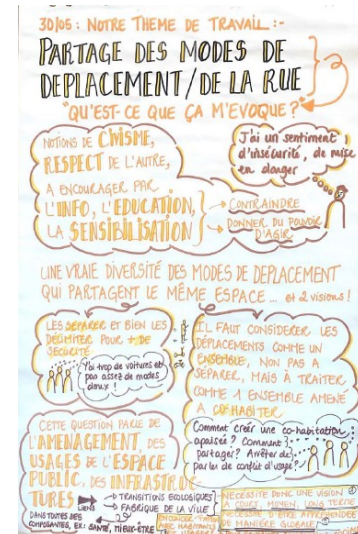 30/05 : NOTRE THEME DE TRAVAIL :-
PARTAGE DES MODES DE
DEPLACEMENT/DE LA RUE
"QU'EST-CE QUE ÇA M'EVOQUE ?"
NOTIONS DE CIVISME,
RESPECT DE L'AUTRE,
A ENCOURAGER PAR
L'INFO, L'EDUCATION,
LA SENSIBILISATION
J'ai un sentiment
d'insécurité, de mise
en danger
→ CONTRAINDRE
→ DONNER DU POUVOIR
D'AGIR
UNE VRAIE DIVERSITÉ DES MODES DE DEPLACEMENT
QUI PARTAGENT LE MÊME ESPACE ... et 2 visions !
LES SÉPARER ET BIEN LES
DÉLIMITER POUR + DE
SÉCURITÉ
Y'a trop de voitures et
pas assez de modes
doux !
IL FAUT CONSIDERER LES
DÉPLACEMENTS COMME UN
ENSEMBLE, NON PAS A
SEPARER, MAIS À TRAITER
COMME 1 ENSEMBLE AMENÉ
A COHABITER
Comment créer une co-habitation
apaisée ? Comment
partager ? Arrêter de
parler de conflit d'usage ?
CETTE QUESTION PARLE DE
L'AMENAGEMENT, DES
USAGES DE L'ESPACE
PUBLIC, DES INFRASTRUC
TURES
LIENS
→ TRANSITIONS ECOLOGIQUES
→ FABRIQUE DE LA VILLE
DANS TOUTES SES
COMPOSANTES, EX: SANTÉ, MIEUX-ÊTRE
NÉCESSITE DONC UNE VISION
A COURT, MOYEN, LONG TERME
NÉCESSITÉ D'ÊTRE APPRÉHENDÉE
DE MANIÈRE GLOBALE
AVEC HABITANTS